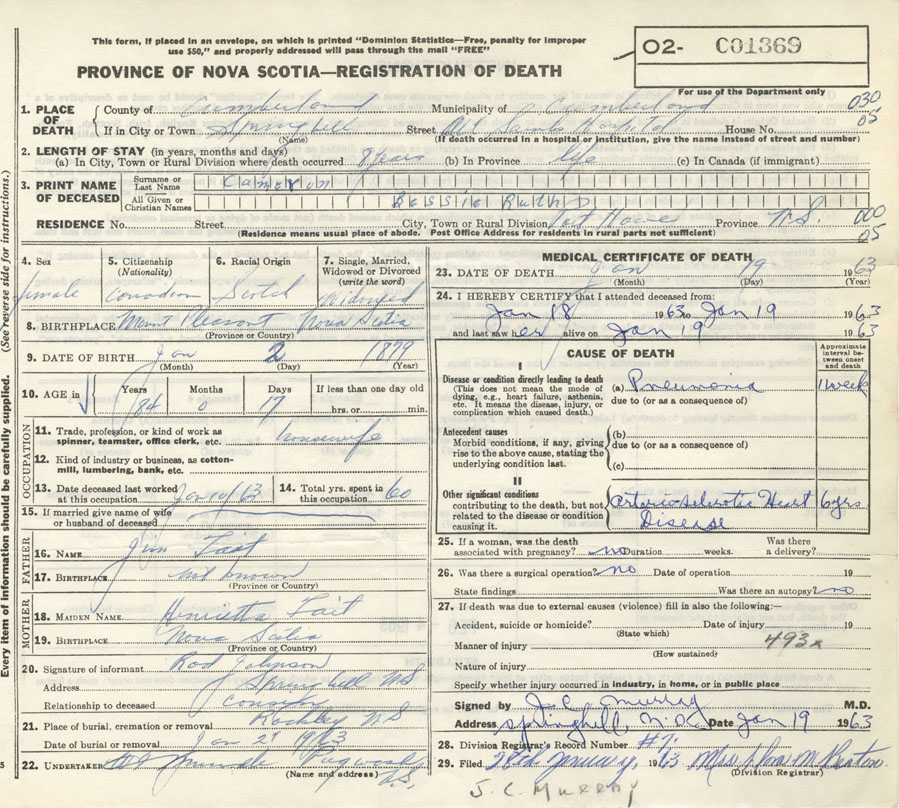 This form, if placed in an envelope, on which is printed "Dominion Statistics—Free, penalty for improper
use $50," and properly addressed will pass through the mail "FREE"
O2- C01369
PROVINCE OF NOVA SCOTIA—REGISTRATION OF DEATH
For use of the Department only
1. PLACE OF DEATH
County of Cumberland Municipality of Cumberland 030
If in City or Town Springhill Street All Saints Hospital House No. 05
(Name) (If death occurred in a hospital or institution, give the name instead of street and number)
2. LENGTH OF STAY (in years, months and days)
(a) In City, Town or Rural Division where death occurred 8 years (b) In Province life (c) In Canada (if immigrant)
3. PRINT NAME OF DECEASED
Surname or Last Name Cameron
All Given or Christian Names Bessie Ruth
RESIDENCE No. Street City, Town or Rural Division Port Howe Province N.S. 000
(Residence means usual place of abode. Post Office Address for residents in rural parts not sufficient) 05
4. Sex female
5. Citizenship (Nationality) Canadian
6. Racial Origin Scotch
7. Single, Married, Widowed or Divorced (write the word) Widowed
8. BIRTHPLACE Mount Pleasant Nova Scotia
(Province or Country)
9. DATE OF BIRTH Jan 2 1879
(Month) (Day) (Year)
10. AGE in Years Months Days If less than one day old
84 0 17 hrs. or min.
OCCUPATION
11. Trade, profession, or kind of work as spinner, teamster, office clerk, etc. housewife
12. Kind of industry or business, as cotton-mill, lumbering, bank, etc.
13. Date deceased last worked at this occupation Jan 10/63
14. Total yrs. spent in this occupation 60
15. If married give name of wife or husband of deceased
FATHER
16. NAME Jim
17. BIRTHPLACE not known
(Province or Country)
MOTHER
18. MAIDEN NAME Henrietta
19. BIRTHPLACE Nova Scotia
(Province or Country)
20. Signature of informant Rod Johnson
Address Springhill NS
Relationship to deceased cousin
21. Place of burial, cremation or removal Rockley NS
Date of burial or removal Jan 21 1963
22. UNDERTAKER Pugwash N.S.
(Name and address)
MEDICAL CERTIFICATE OF DEATH
23. DATE OF DEATH Jan 19 1963
(Month) (Day) (Year)
24. I HEREBY CERTIFY that I attended deceased from:
Jan 18 1963 to Jan 19 1963
and last saw her alive on Jan 19 1963
CAUSE OF DEATH
Approximate interval between onset and death
I
Disease or condition directly leading to death
(This does not mean the mode of dying, e.g., heart failure, asthenia, etc. It means the disease, injury, or complication which caused death.)
(a) Pneumonia 1 week
due to (or as a consequence of)
Antecedent causes
Morbid conditions, if any, giving rise to the above cause, stating the underlying condition last.
(b)
due to (or as a consequence of)
(c)
II
Other significant conditions
contributing to the death, but not related to the disease or condition causing it.
Arteriosclerotic Heart 6 yrs
Disease
25. If a woman, was the death associated with pregnancy? no Duration weeks. Was there a delivery?
26. Was there a surgical operation? no Date of operation 19
State findings Was there an autopsy? no
27. If death was due to external causes (violence) fill in also the following:—
Accident, suicide or homicide? Date of injury 19
(State which)
Manner of injury 493x
(How sustained)
Nature of injury
Specify whether injury occurred in industry, in home, or in public place
Signed by J.C. Murray M.D.
Address Springhill, N.S. Date Jan 19 1963
28. Division Registrar's Record Number #7.
29. Filed January, 1963 Mrs
(Division Registrar)
J. C. MURRAY
Every item of information should be carefully supplied. (See reverse side for instructions.)
5